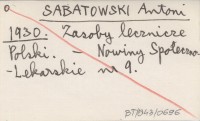 SABATOWSKI Antoni
1930. Zasoby lecznicze
Polski. - Nowiny Społeczno-
-Lekarskie nr 9.